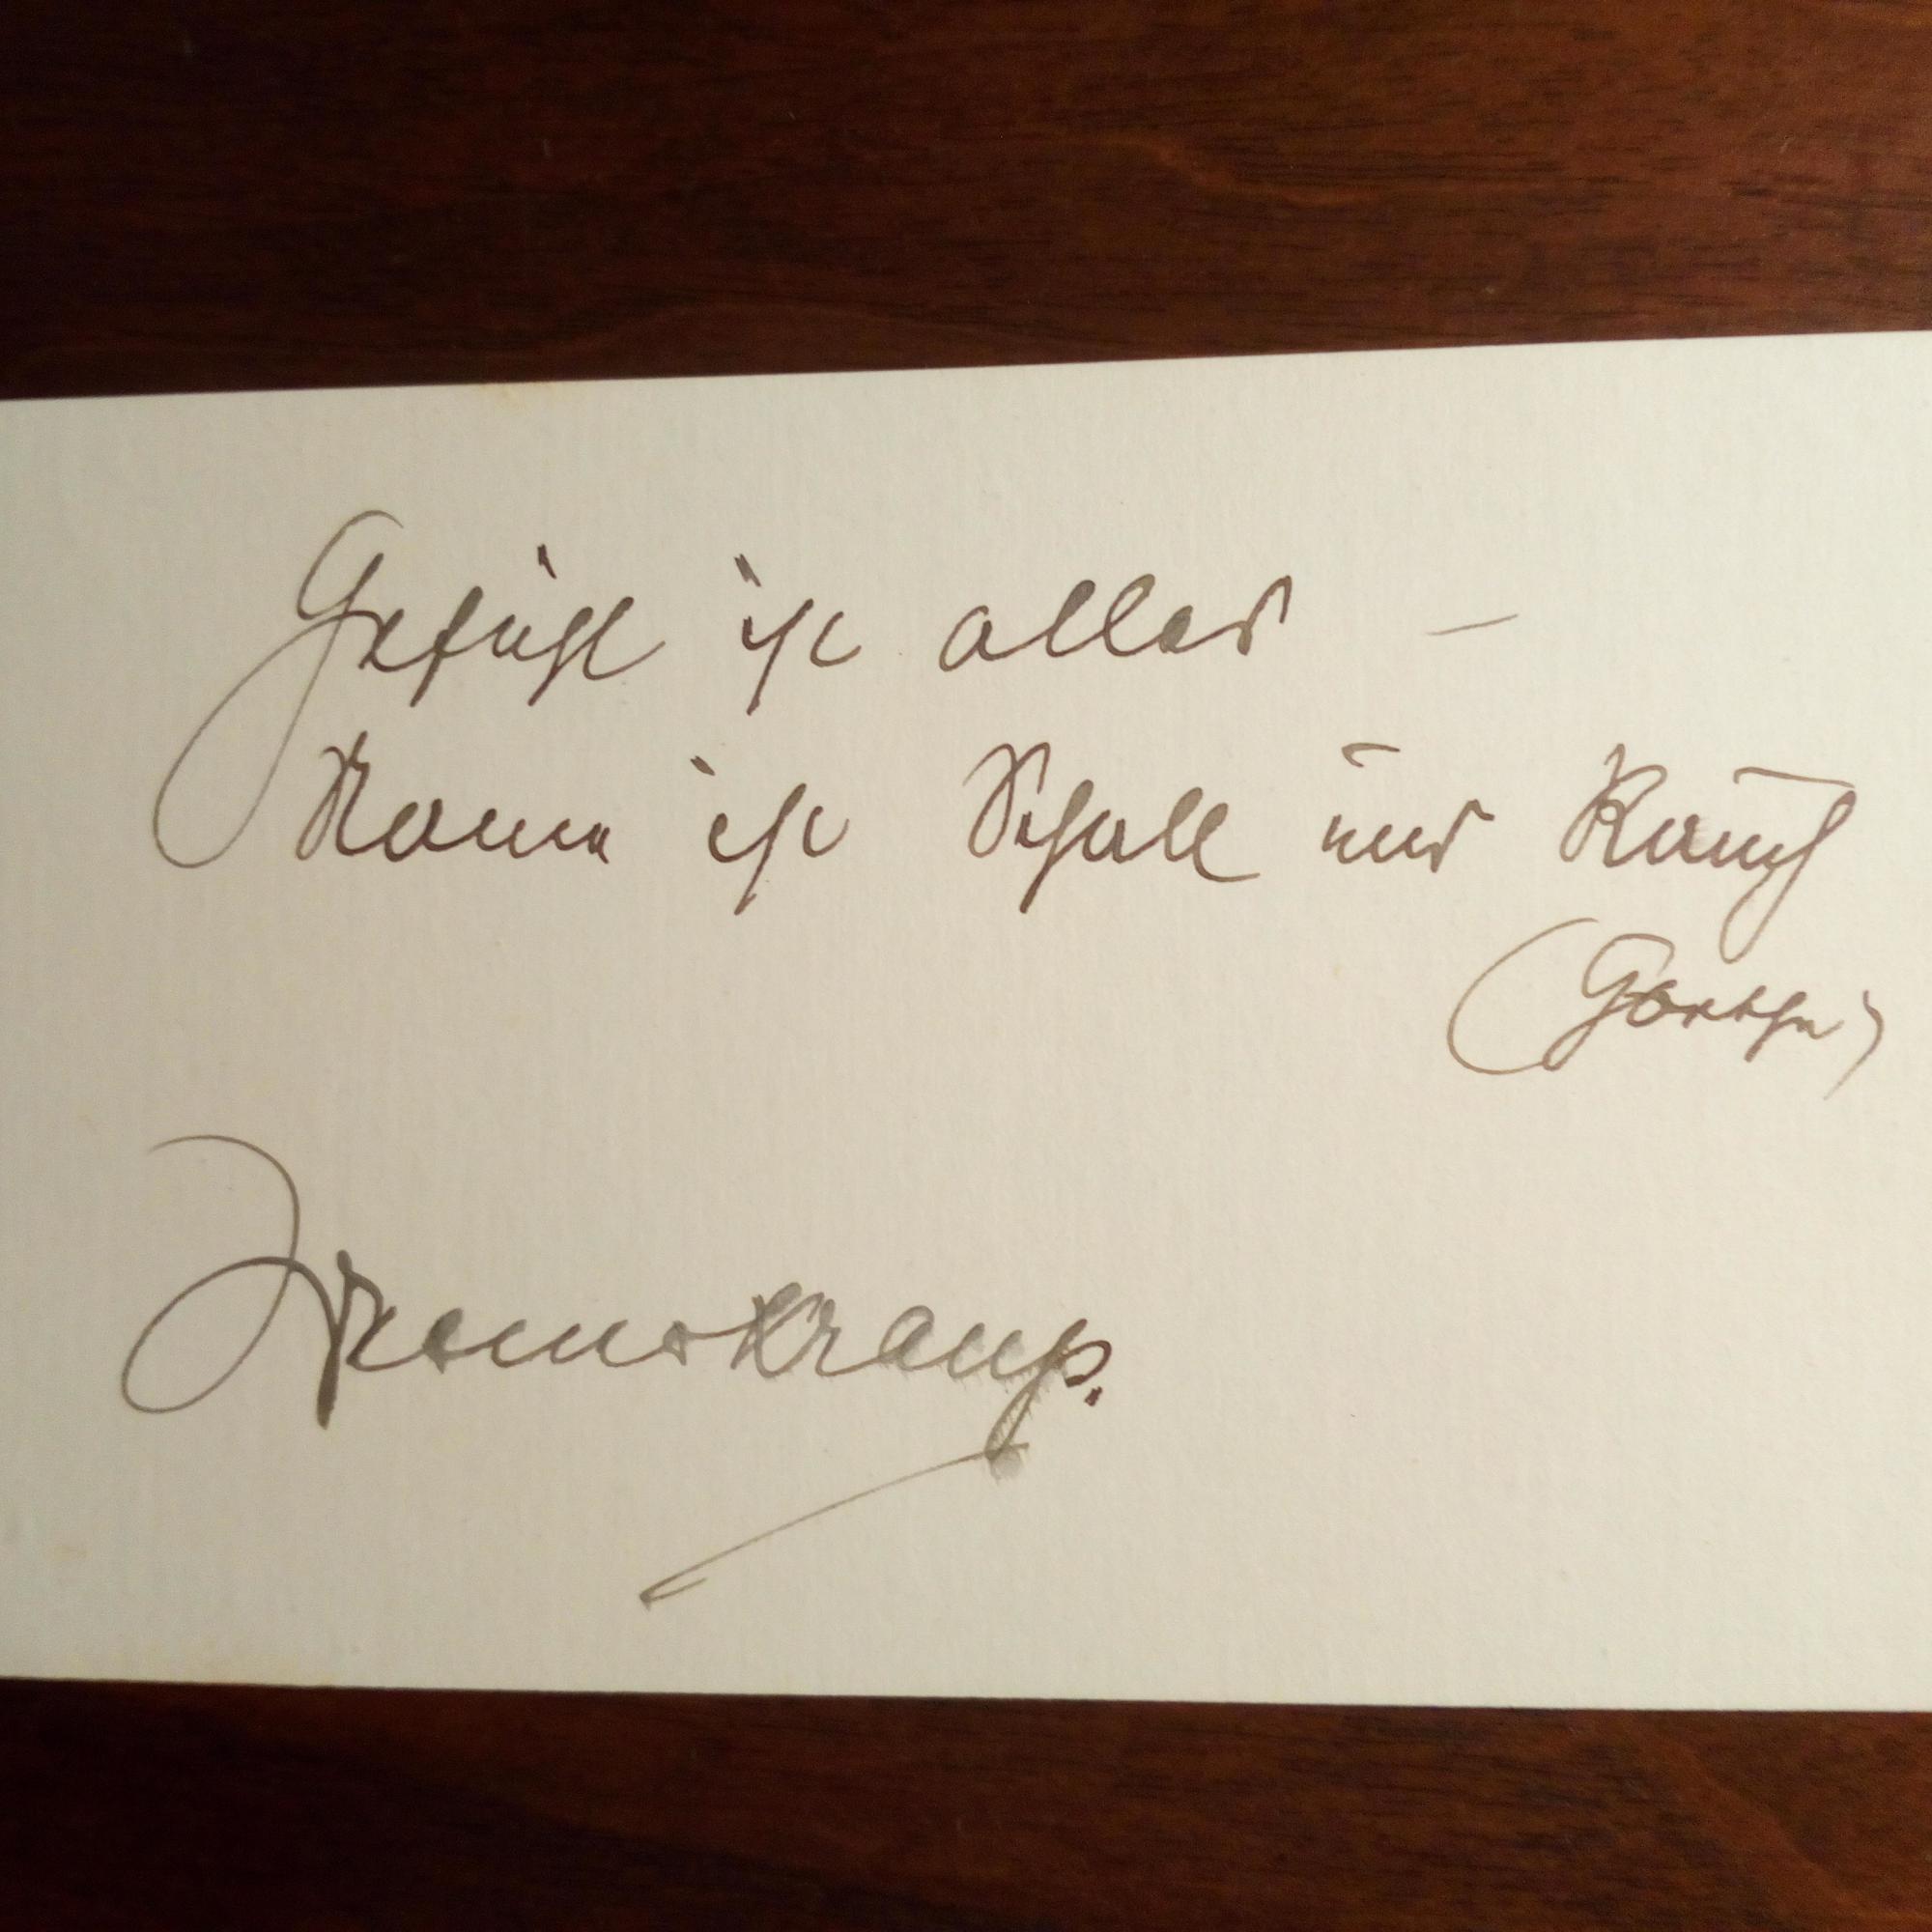 Gefühl ist alles –
Name ist Schall und Rauch
(Goethe)